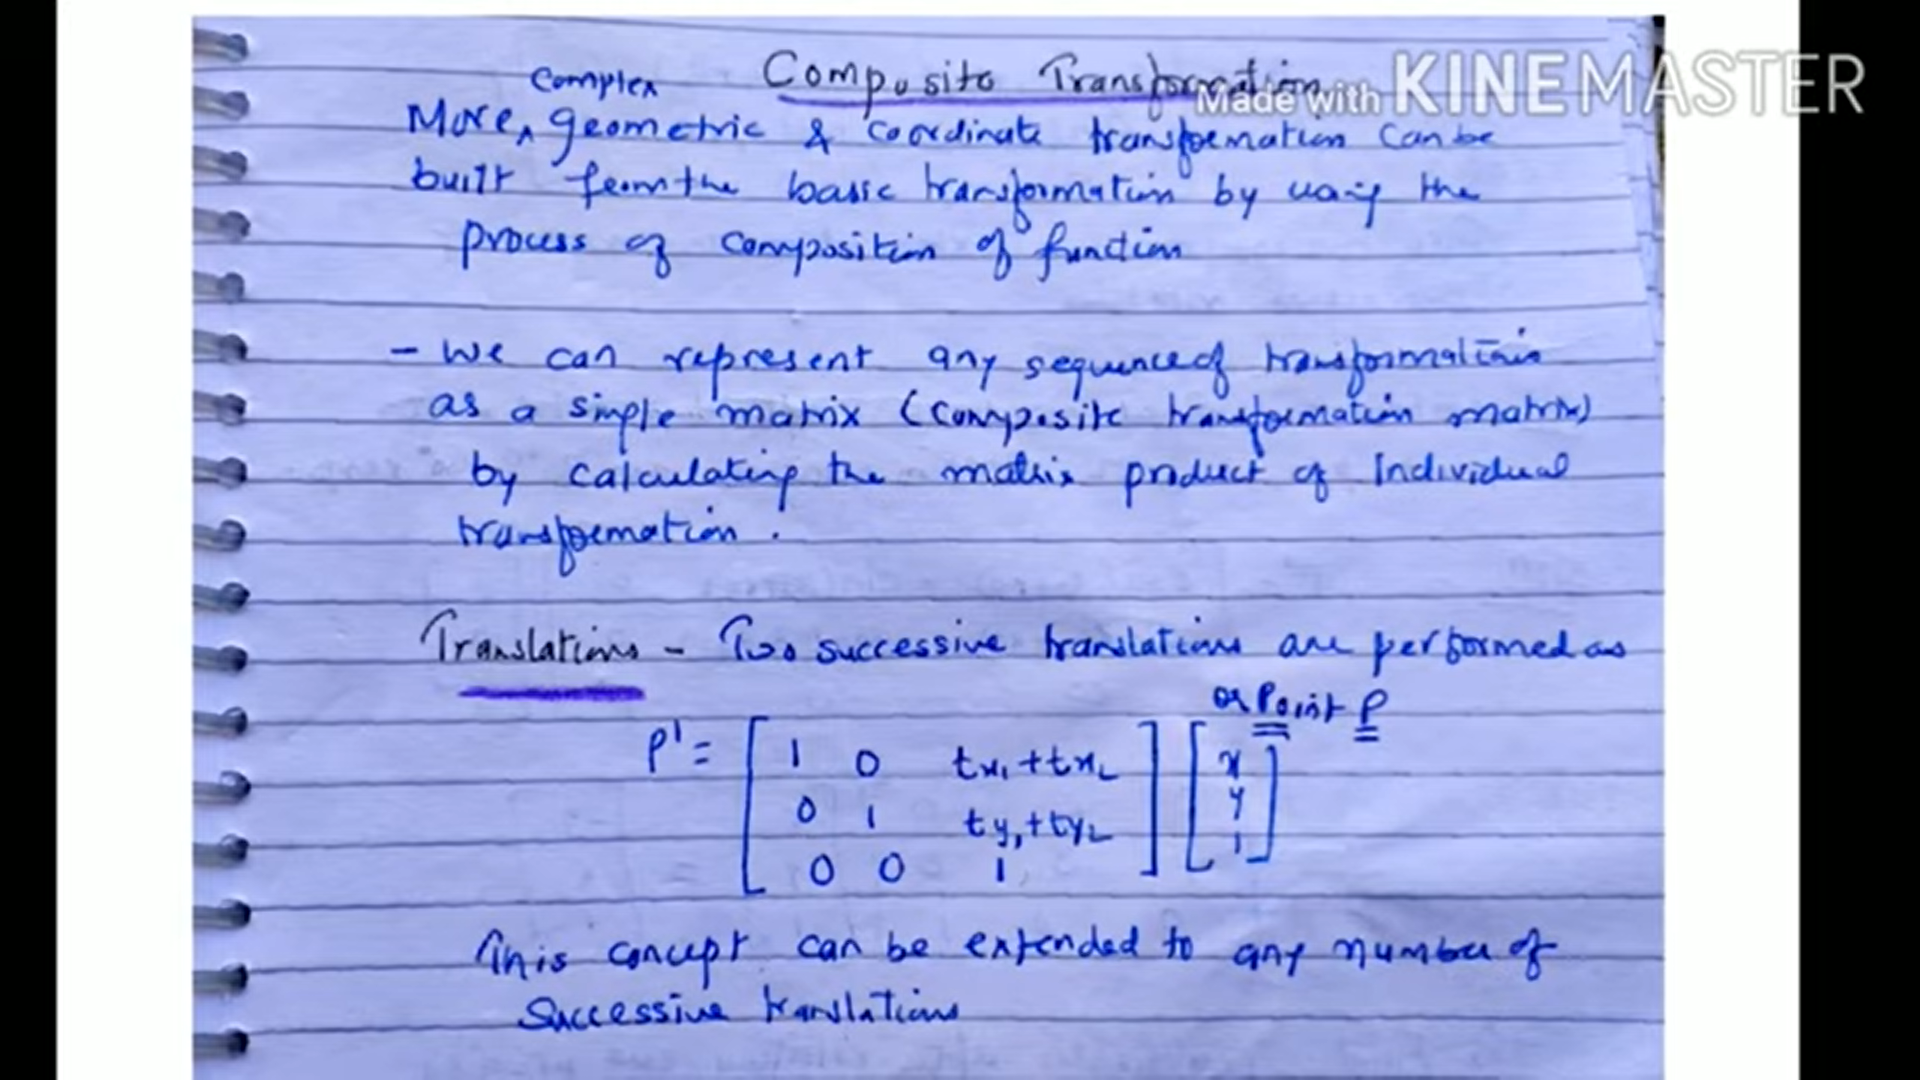 Composite Transformation
Made with KINEMASTER
Complex
More ^ geometric & coordinate transformation can be
built from the basic transformation by using the
process of composition of function
- We can represent any sequence of transformations
as a simple matrix (composite transformation matrix)
by calculating the matrix product of Individual
transformation.
Translations - Two successive translations are performed as
Point P
P' = [ 1 0 tx₁+tx₂ ] [ x ]
0 1 ty₁+ty₂ y
0 0 1 1
This concept can be extended to any number of
Successive translations